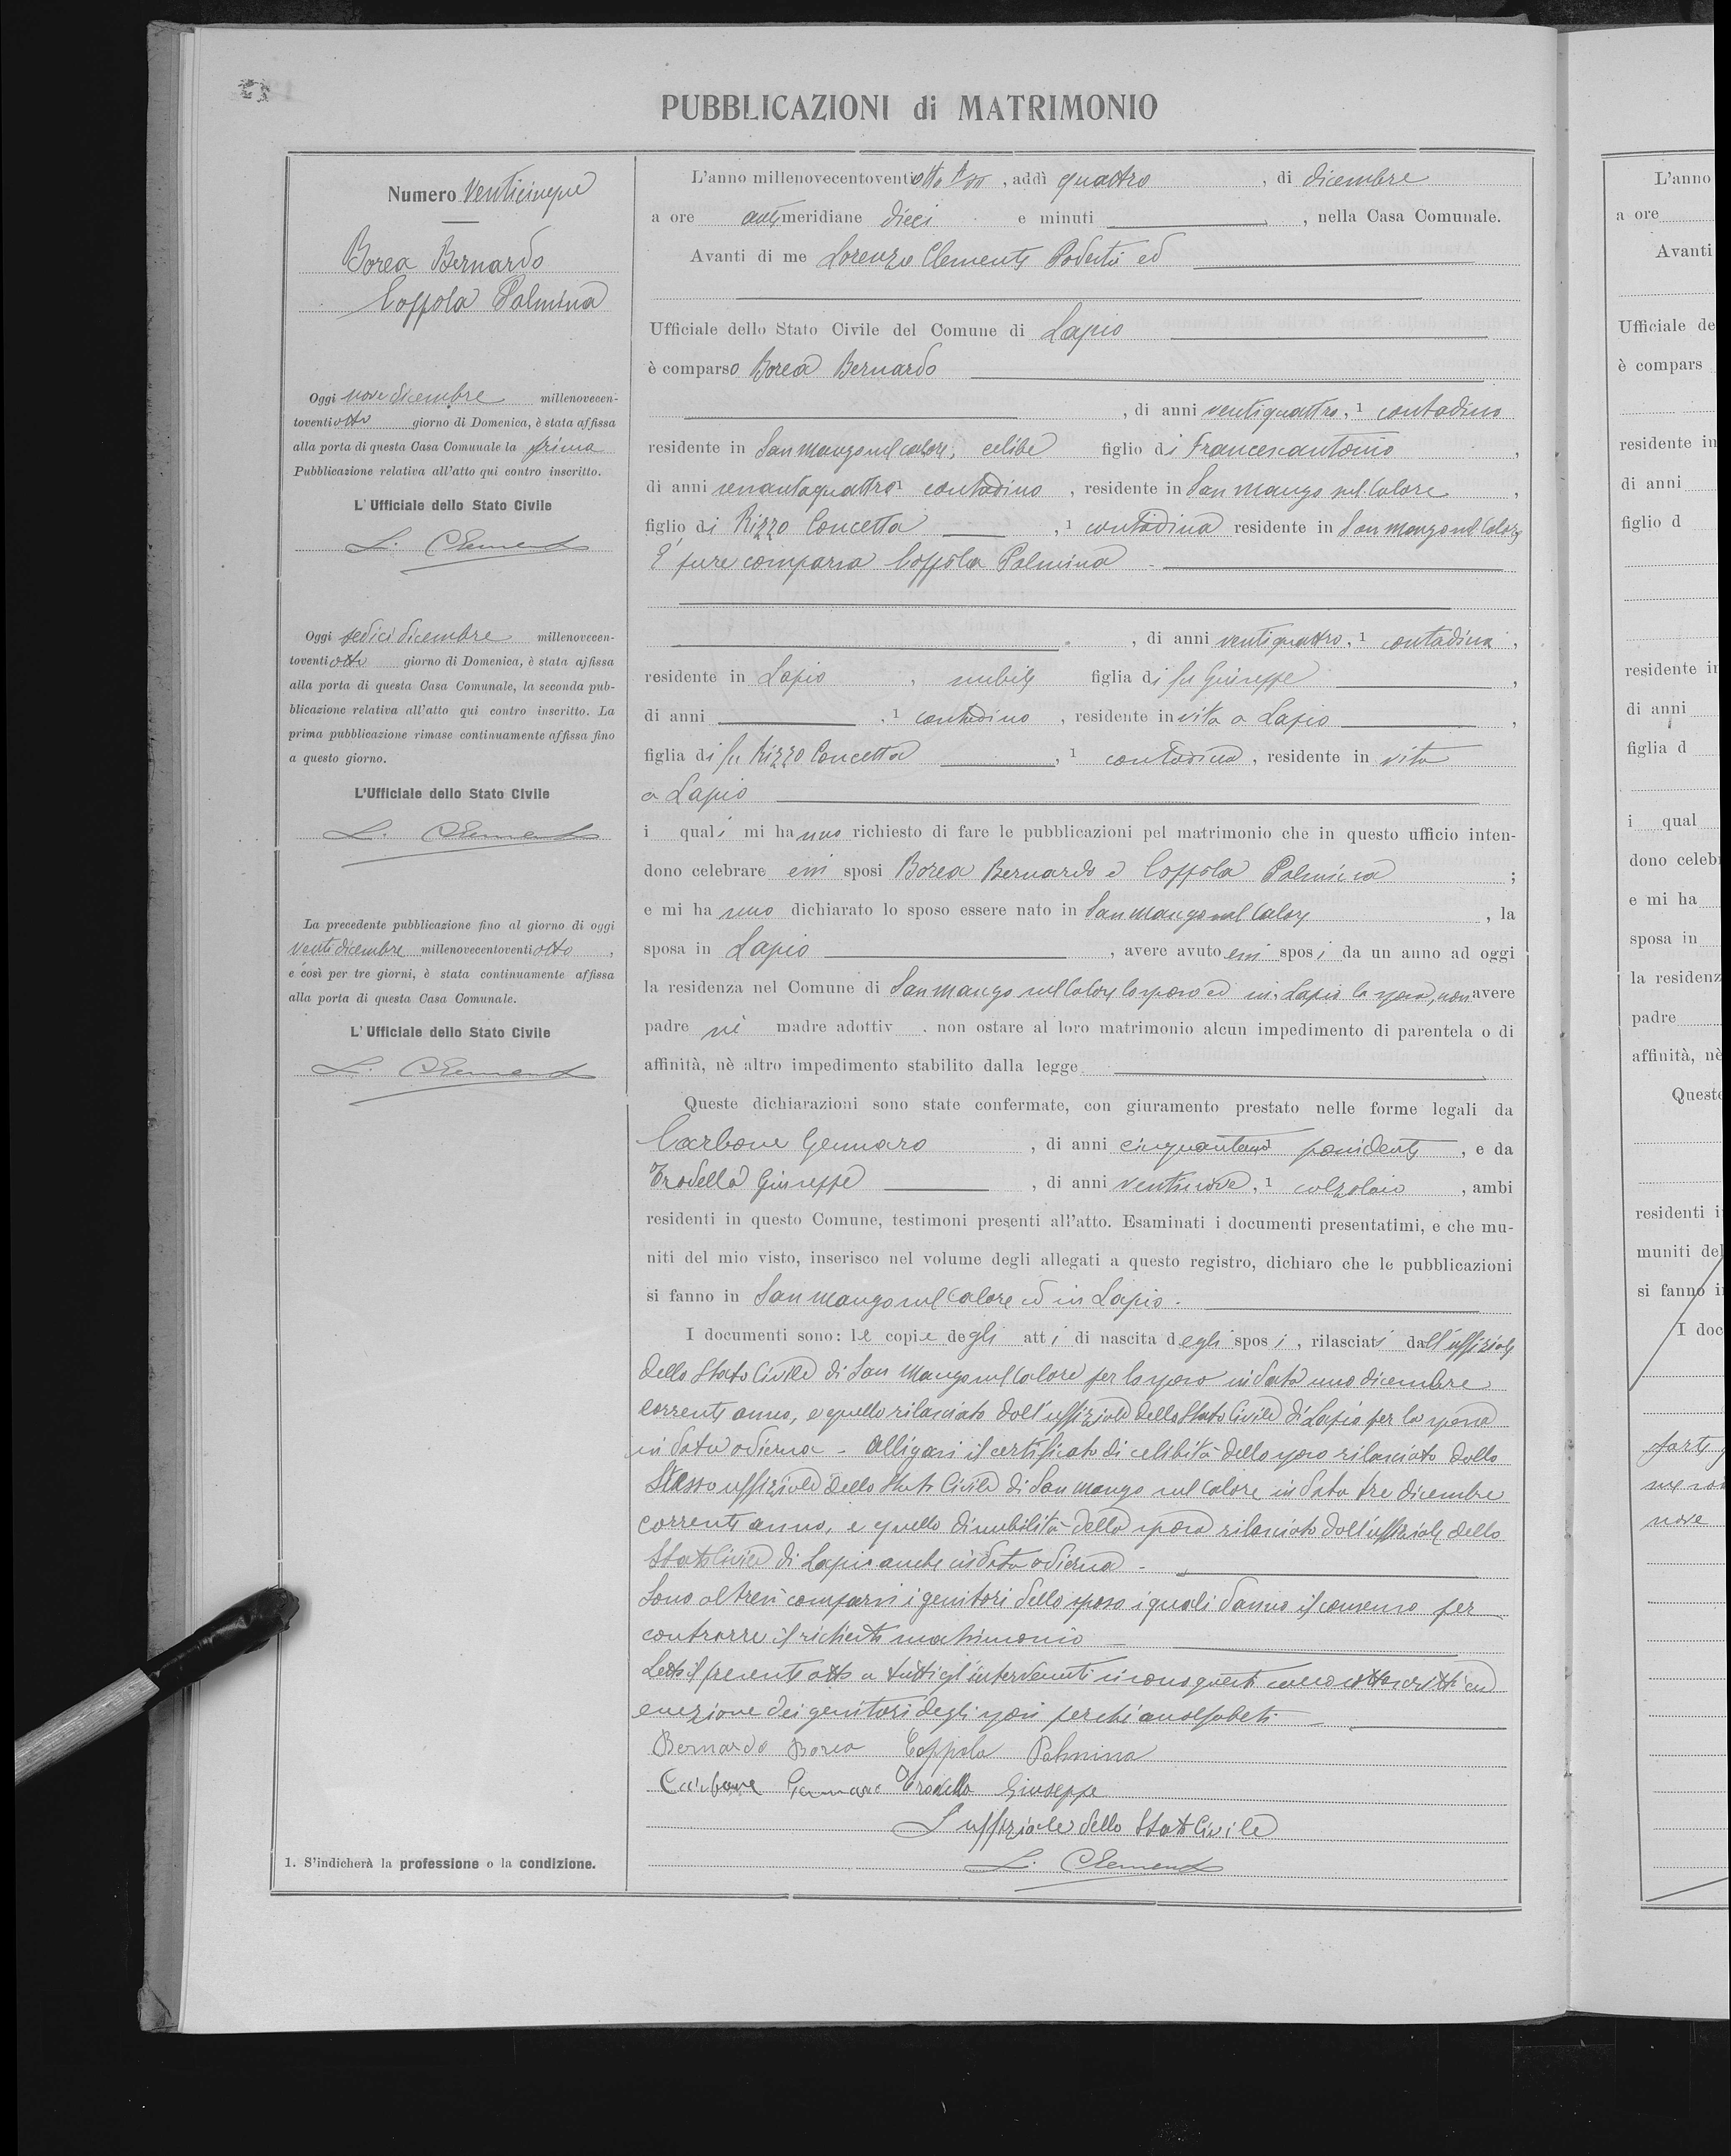 PUBBLICAZIONI di MATRIMONIO
Numero Venticinque
Borea Bernardo
Coppola Palmina
Oggi nove dicembre millenovecen-
toventiotto giorno di Domenica, è stata affissa
alla porta di questa Casa Comunale la prima
Pubblicazione relativa all'atto qui contro inscritto.
L'Ufficiale dello Stato Civile
L. Clemente
Oggi sedici dicembre millenovecen-
toventiotto giorno di Domenica, è stata affissa
alla porta di questa Casa Comunale, la seconda pub-
blicazione relativa all'atto qui contro inscritto. La
prima pubblicazione rimase continuamente affissa fino
a questo giorno.
L'Ufficiale dello Stato Civile
L. Clemente
La precedente pubblicazione fino al giorno di oggi
venti dicembre millenovecentoventiotto,
e così per tre giorni, è stata continuamente affissa
alla porta di questa Casa Comunale.
L'Ufficiale dello Stato Civile
L. Clemente
1. S'indicherà la professione o la condizione.
L'anno millenovecentoventiotto, addì quattro, di dicembre
a ore antimeridiane dieci e minuti , nella Casa Comunale.
Avanti di me Lorenzo Clemente Podestà ed
Ufficiale dello Stato Civile del Comune di Lapio
è comparso Borea Bernardo
, di anni ventiquattro, 1 contadino
residente in San Mango sul Calore, celibe figlio di Francescantonio,
di anni sessantaquattro 1 contadino, residente in San Mango sul Calore,
figlio di Rizzo Concetta, 1 contadina residente in San Mango sul Calore
È pure comparsa Coppola Palmina
, di anni ventiquattro, 1 contadina,
residente in Lapio, nubile figlia di fu Giuseppe,
di anni , 1 contadino, residente in vita a Lapio,
figlia di fu Rizzo Concetta, 1 contadina, residente in vita
a Lapio
i quali mi hanno richiesto di fare le pubblicazioni pel matrimonio che in questo ufficio inten-
dono celebrare essi sposi Borea Bernardo e Coppola Palmina;
e mi hanno dichiarato lo sposo essere nato in San Mango sul Calore, la
sposa in Lapio, avere avuto essi sposi da un anno ad oggi
la residenza nel Comune di San Mango sul Calore lo sposo ed in Lapio la sposa, non avere
padre nè madre adottiv . non ostare al loro matrimonio alcun impedimento di parentela o di
affinità, nè altro impedimento stabilito dalla legge
Queste dichiarazioni sono state confermate, con giuramento prestato nelle forme legali da
Carbone Gennaro, di anni possidente, e da
Trodella Giuseppe, di anni ventinove, 1 calzolaio, ambi
residenti in questo Comune, testimoni presenti all'atto. Esaminati i documenti presentatimi, e che mu-
niti del mio visto, inserisco nel volume degli allegati a questo registro, dichiaro che le pubblicazioni
si fanno in San Mango sul Calore ed in Lapio.
I documenti sono: le copie degli atti di nascita degli sposi, rilasciati dall'uffiziale
dello Stato Civile di San Mango sul Calore per lo sposo in data uno dicembre
corrente anno, e quello rilasciato dall'uffiziale dello Stato Civile di Lapio per la sposa
in data odierna - Alligasi il certificato di celibità dello sposo rilasciato dallo
stesso uffiziale dello Stato Civile di San Mango sul Calore in data tre dicembre
corrente anno, e quello di nubilità della sposa rilasciato dall'uffiziale dello
Stato Civile di Lapio anche in data odierna -
Sono altresì comparsi i genitori dello sposo i quali danno il consenso per
contrarre il richiesto matrimonio
Letto il presente atto a tutti gl'intervenuti sottoscritti ad
eccezione dei genitori degli sposi perchè analfabeti
Bernardo Borea Coppola Palmina
Carbone Gennaro Trodella Giuseppe
L'uffiziale dello Stato Civile
L. Clemente
L'anno
a ore
Avanti
Ufficiale de
è compars
residente in
di anni
figlio d
residente in
di anni
figlia d
i qual
dono celeb
e mi ha
sposa in
la residenz
padre
affinità, nè
Queste
residenti i
muniti del
si fanno i
I doc
nove